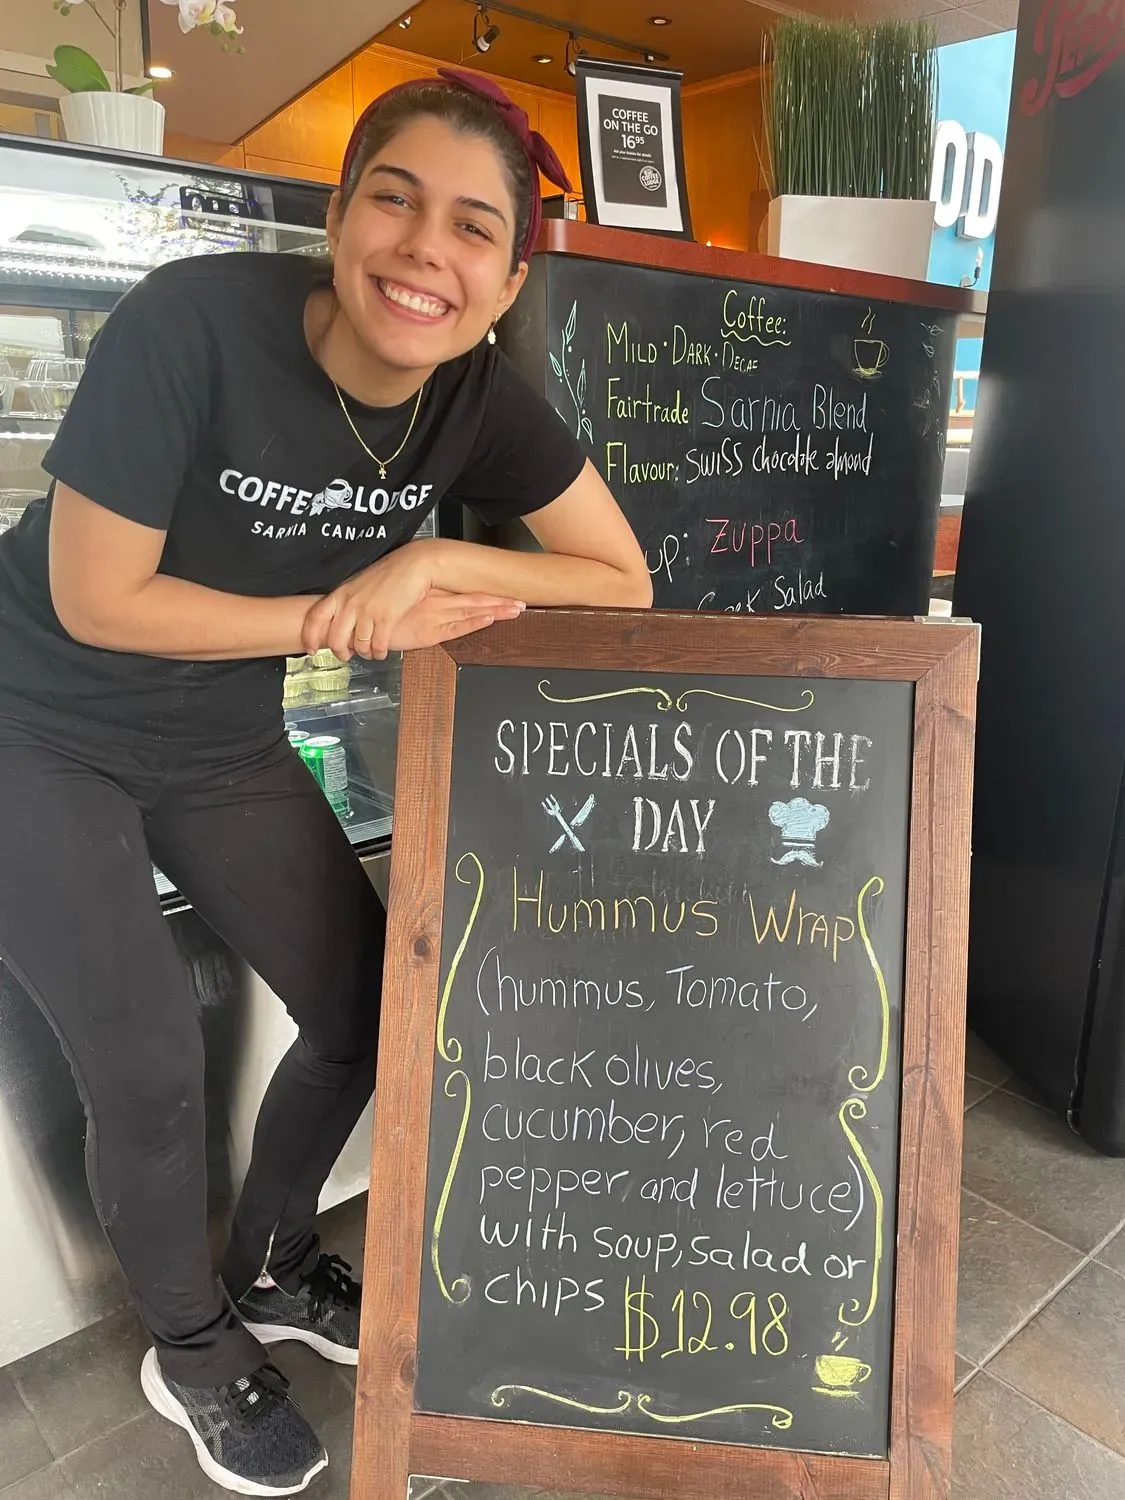 COFFEE
ON THE GO
16⁹⁵
COFFEE
LODGE
OD
Coffee:
MILD · DARK · DECAF
Fairtrade Sarnia Blend
Flavour: Swiss chocolate almond
up: Zuppa
Salad
COFFEE LODGE
SARNIA CANADA
SPECIALS OF THE
DAY
Hummus Wrap
(hummus, Tomato,
black olives,
cucumber, red
pepper, and lettuce)
with soup, salad or
chips $12.98